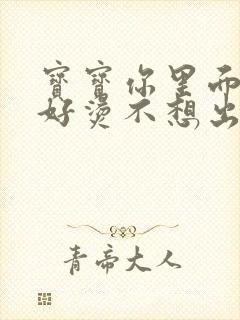 寶寶你里面
好燙不想出
青帝大人